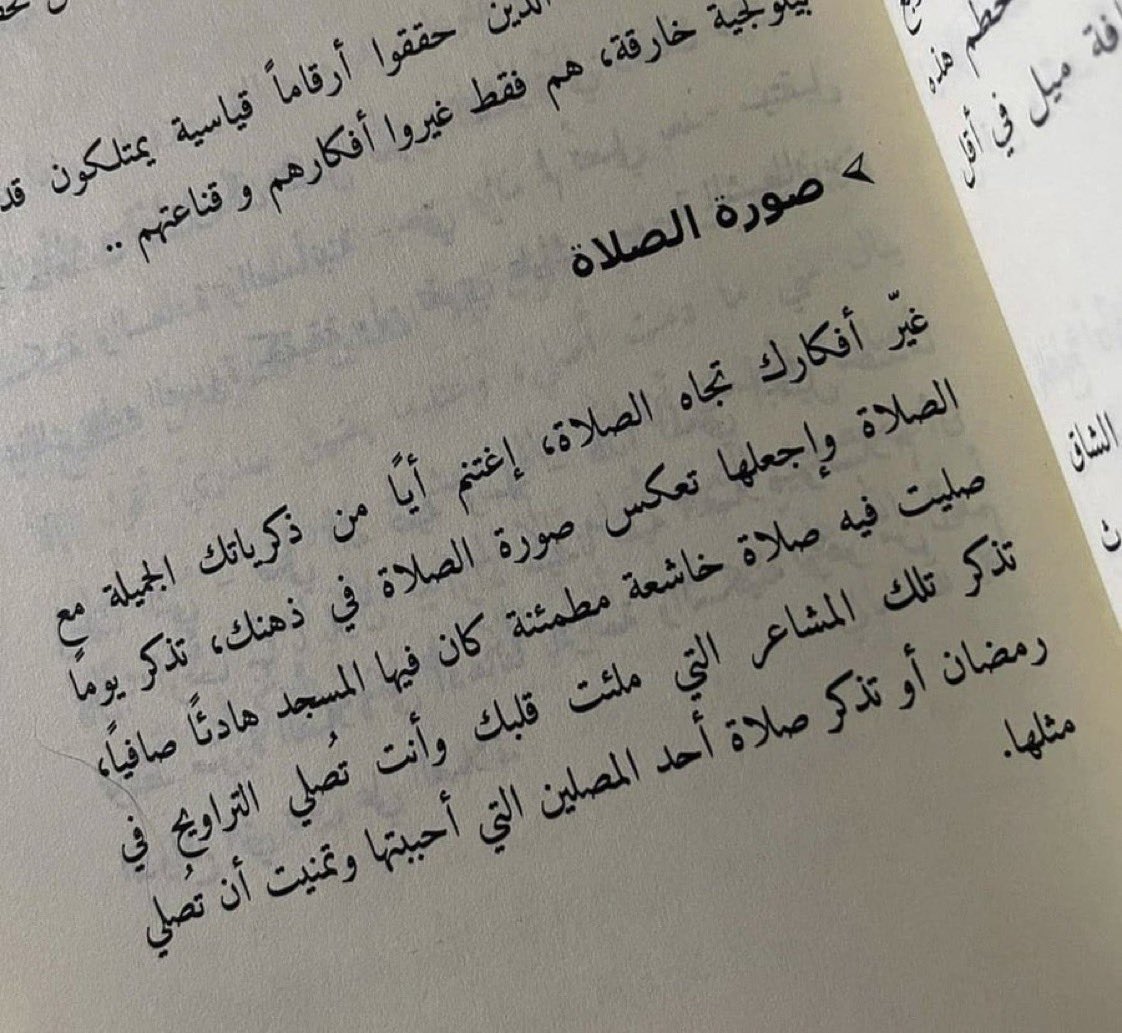 الذين حققوا أرقاماً قياسية يمتلكون
بيلوجية خارقة، هم فقط غيروا أفكارهم و قناعتهم ..
> صورة الصلاة
غيّر أفكارك تجاه الصلاة، إغتنم أيًا من ذكرياتك الجميلة مع
الصلاة وإجعلها تعكس صورة الصلاة في ذهنك، تذكر يوماً
صليت فيه صلاة خاشعة مطمئنة كان فيها المسجد هادئًا صافياً،
تذكر تلك المشاعر التي ملئت قلبك وأنت تُصلي التراويح في
رمضان أو تذكر صلاة أحد المصلين التي أحببتها وتمنيت أن تُصلي
مثلها.
هذه
ميل في أقل
الشاق